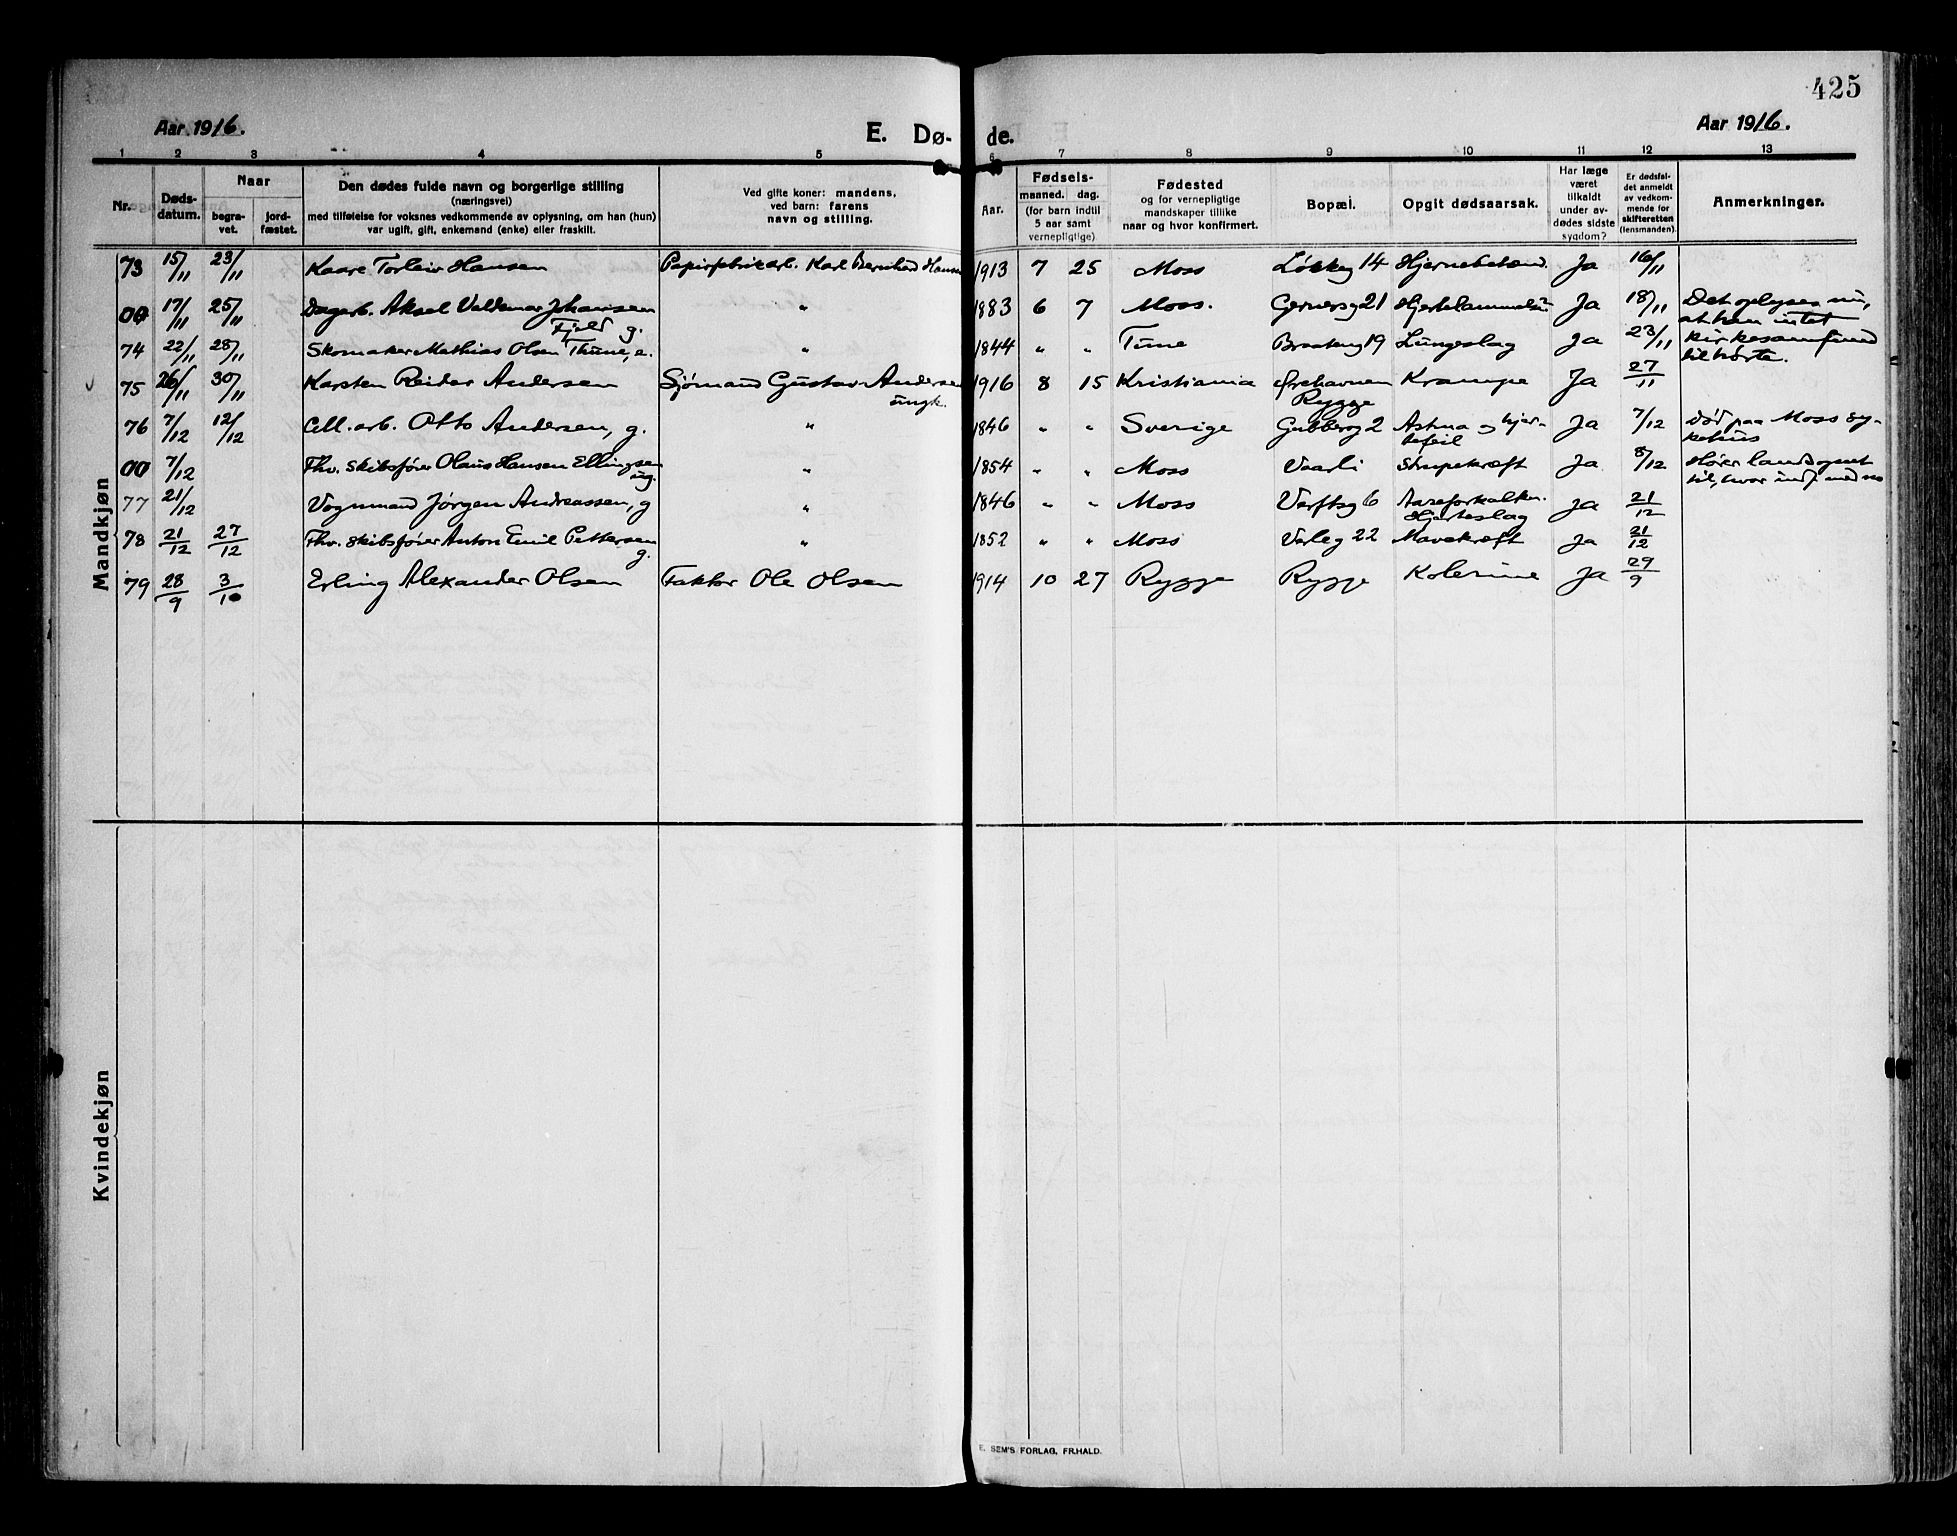 425
Aar 1916.
E. Dø-
de.
Aar 1916.
1 2 3 4 5 6 7 8 9 10 11 12 13
Nr.
Døds-
datum.
Naar
begra-
vet.
jord-
fæstet.
Den dødes fulde navn og borgerlige stilling
(næringsvei)
med tilføielse for voksnes vedkommende av oplysning, om han (hun)
var ugift, gift, enkemand (enke) eller fraskilt.
Ved gifte koner: mandens,
ved barn: farens
navn og stilling.
Aar.
Fødsels-
maaned. dag.
(for barn indtil
5 aar samt
vernepligtige)
Fødested
og for vernepligtige
mandskaper tillike
naar og hvor konfirmert.
Bopæl.
Opgit dødsaarsak.
Har læge
været
tilkaldt
under av-
dødes sidste
sygdom?
Er dødsfal-
det anmeldt
av vedkom-
mende for
skifteretten
(lensmanden).
Anmerkninger.
Mandkjøn
73 15/11 23/11 Kaare Torleiv Hansen Papirfabrikarb. Karl Bernhard Hansen 1913 7 25 Moss Løkkeg 14 Hjernebetænd. Ja 16/11
00 17/11 25/11 Dagarb. Aksel Valdemar Johansen " 1883 6 7 Moss. Gernersg 21 Ja 18/11 Det oplyses nu,
Fjeld g. at han intet
74 22/11 28/11 Skomaker Mathias Olsen Thune, e. " 1844 " " Tune 19 Lungeslag Ja 23/11 kirkesamfund
tilhørte.
75 26/11 30/11 Karsten Reidar Andersen Sjømand Gustav Andersen 1916 8 15 Kristiania Ørehavnen Krampe Ja 27/11
ungk. Rygge
76 7/12 12/12 Cell. arb. Otto Andersen, g. " 1846 " " Sverige Gubberg 2 Astma og hjer- Ja 7/12 Død paa Moss sy-
tefeil kehus
00 7/12 Fhv. skibsfører Olaus Hansen Ellingsen " 1854 " " Moss Vaarli Strupekræft Ja 8/12 Hører landsognet
ug. til, hvor indf. med no
77 21/12 Vognmand Jørgen Andreassen, g " 1846 " " Moss Verftsg 6 Aareforkalkn. Ja 21/12
Hjerteslag
78 21/12 27/12 Fhv. skibsfører Anton Emil Pettersen " 1852 " " Moss Varleg 22 Mavekræft Ja 21/12
g.
79 28/9 3/10 Erling Alexander Olsen Faktor Ole Olsen 1914 10 27 Rygge Rygge Kolerine Ja 29/9
Kvindekjøn
E. SEM'S FORLAG, FR.HALD.